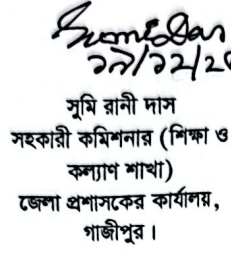 ১৯/১২/২০
সুমি রানী দাস
সহকারী কমিশনার (শিক্ষা ও
কল্যাণ শাখা)
জেলা প্রশাসকের কার্যালয়,
গাজীপুর।